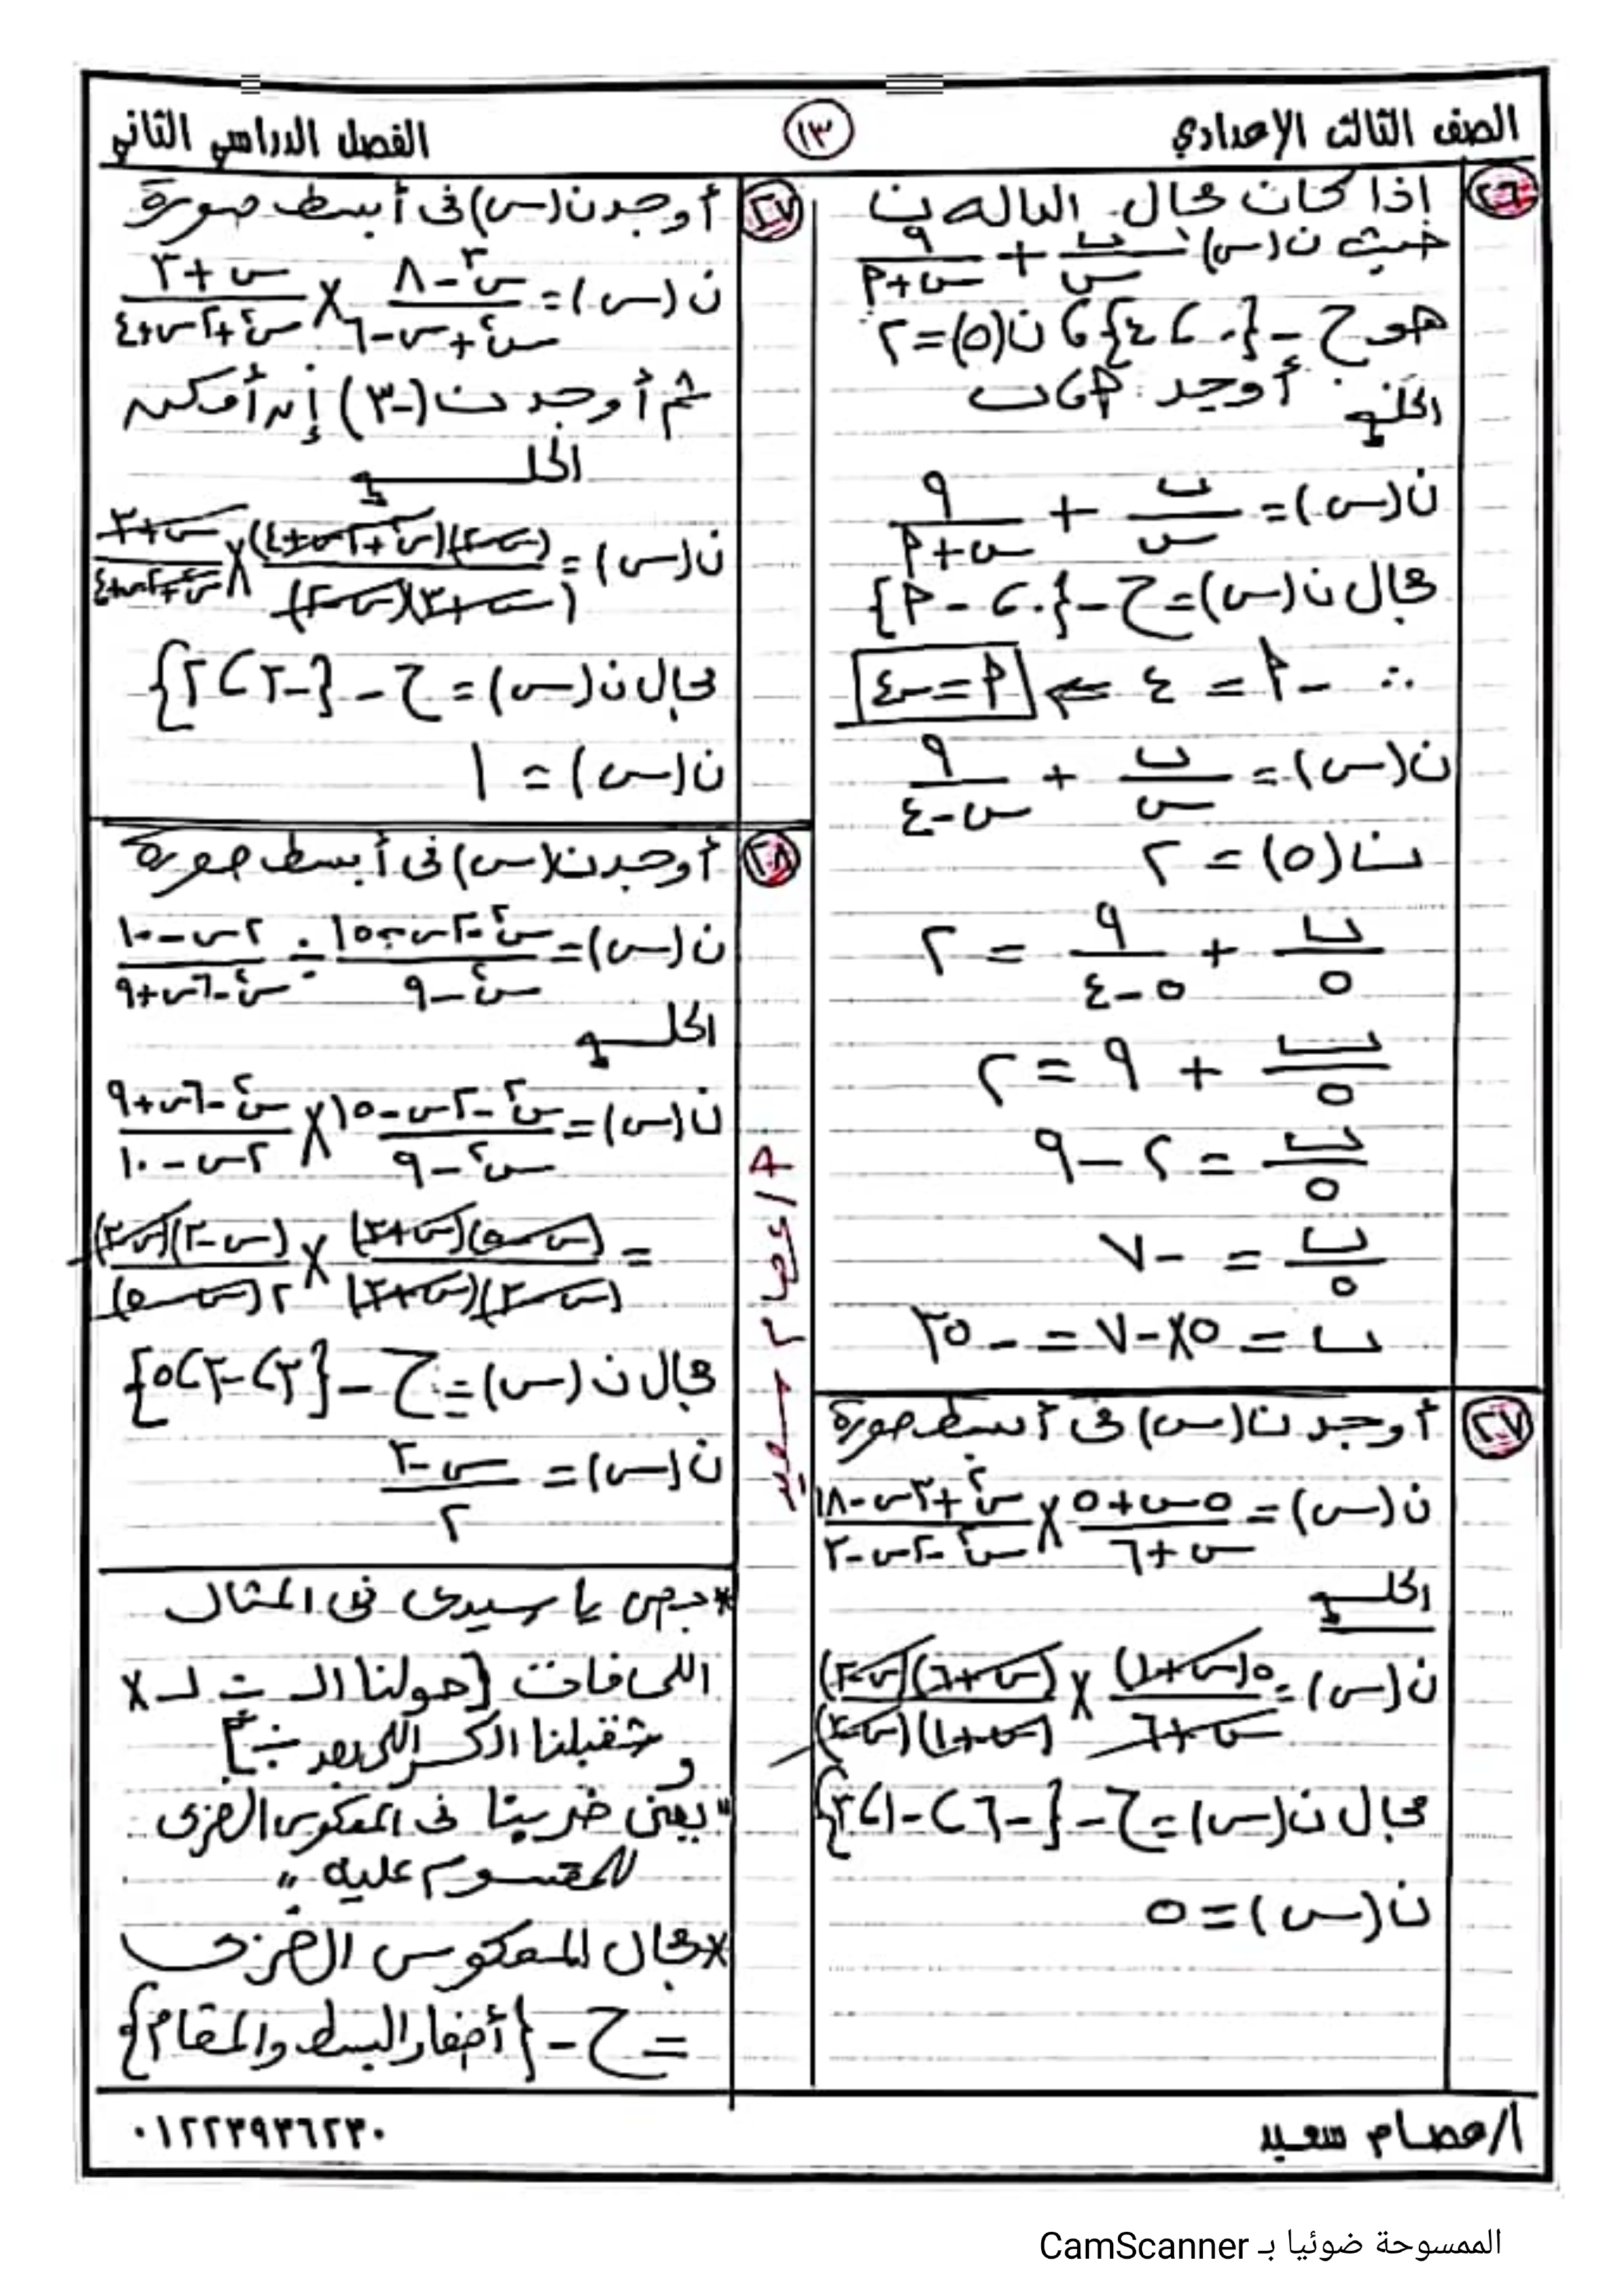 الصف الثالث الإعدادي
١٣
الفصل الدراسي الثاني
٢٦
إذا كان مجال الداله ن
حيث ن(س) = ب/س + ٩/(س+٢) 
هو ح - {٠ ، ٤} ، ن(٥) = ٢
أوجد ٢ ، ب
الحل
ن(س) = ب/س + ٩/(س+٢)
مجال ن(س) = ح - {٠ ، -٢}
∴ -٢ = ٤ ⇐ ٢ = -٤
ن(س) = ب/س + ٩/(س-٤)
ن(٥) = ٢
ب/٥ + ٩/(٥-٤) = ٢
ب/٥ + ٩ = ٢
ب/٥ = ٢ - ٩
ب/٥ = -٧
ب = ٥×-٧ = -٣٥
٢٧
أوجد ن(س) فى أبسط صورة
ن(س) = (٥س+٥)/(س+٦) × (س²+٣س-١٨)/(س²-٢س-٣)
الحل
ن(س) = ٥(س+١)/(س+٦) × (س+٦)(س-٣)/(س+١)(س-٣)
مجال ن(س) = ح - {-٦ ، -١ ، ٣}
ن(س) = ٥
٢٧
أوجد ن(س) فى أبسط صورة
ن(س) = (س³-٨)/(س²+س-٦) × (س+٣)/(س²+٢س+٤)
ثم أوجد ن(-٣) إن أمكن
الحل
ن(س) = (س-٢)(س²+٢س+٤)/(س+٣)(س-٢) × (س+٣)/(س²+٢س+٤)
مجال ن(س) = ح - {-٣ ، ٢}
ن(س) = ١
٢٨
أوجد ن(س) فى أبسط صورة
ن(س) = (س²-٢س-١٥)/(س²-٩) ÷ (٢س-١٠)/(س²-٦س+٩)
الحل
ن(س) = (س²-٢س-١٥)/(س²-٩) × (س²-٦س+٩)/(٢س-١٠)
= (س-٥)(س+٣)/(س-٣)(س+٣) × (س-٣)(س-٣)/٢(س-٥)
مجال ن(س) = ح - {٣ ، -٣ ، ٥}
ن(س) = (س-٣)/٢
* بص يا سيدى فى المثال
اللى فات [حولنا الـ ÷ لـ ×
و شقبلنا الكسر اللى بعد ÷]
"يعنى ضربنا فى المعكوس الضربى
للمقسوم عليه"
* مجال المعكوس الضربى
= ح - {أصفار البسط والمقام}
أ/عصام سعيد
أ/عصام سعيد
٠١٢٢٣٩٣٦٢٣٠
الممسوحة ضوئيا بـ CamScanner